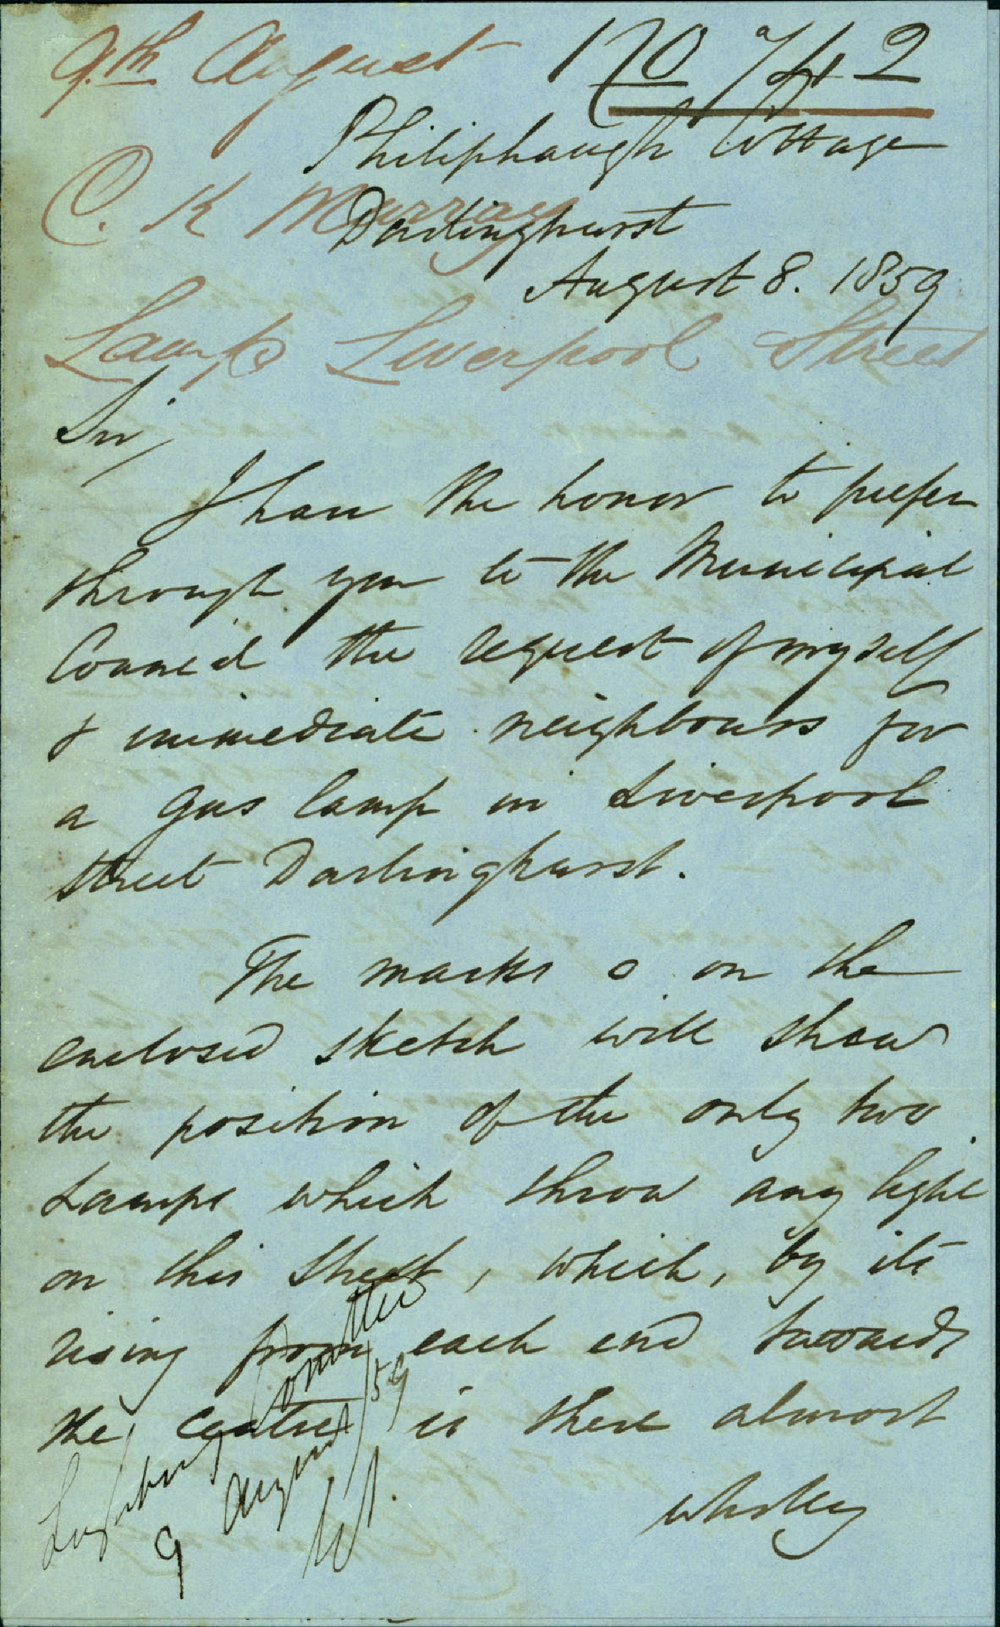 9.th August 120 742
Philiphaugh Cottage
C. K Murray
Darlinghurst
August 8. 1859
Lamp Liverpool Street
Sir,
I have the honor to prefer
through you to the Municipal
Council the request of myself
& immediate neighbours for
a gas lamp in Liverpool
Street Darlinghurst.
The marks o on the
enclosed sketch will show
the position of the only two
Lamps which throw any light
on this Street, which, by its
rising from each end towards
the centre is there almost
wholly
Lighting Committee
9 August /59